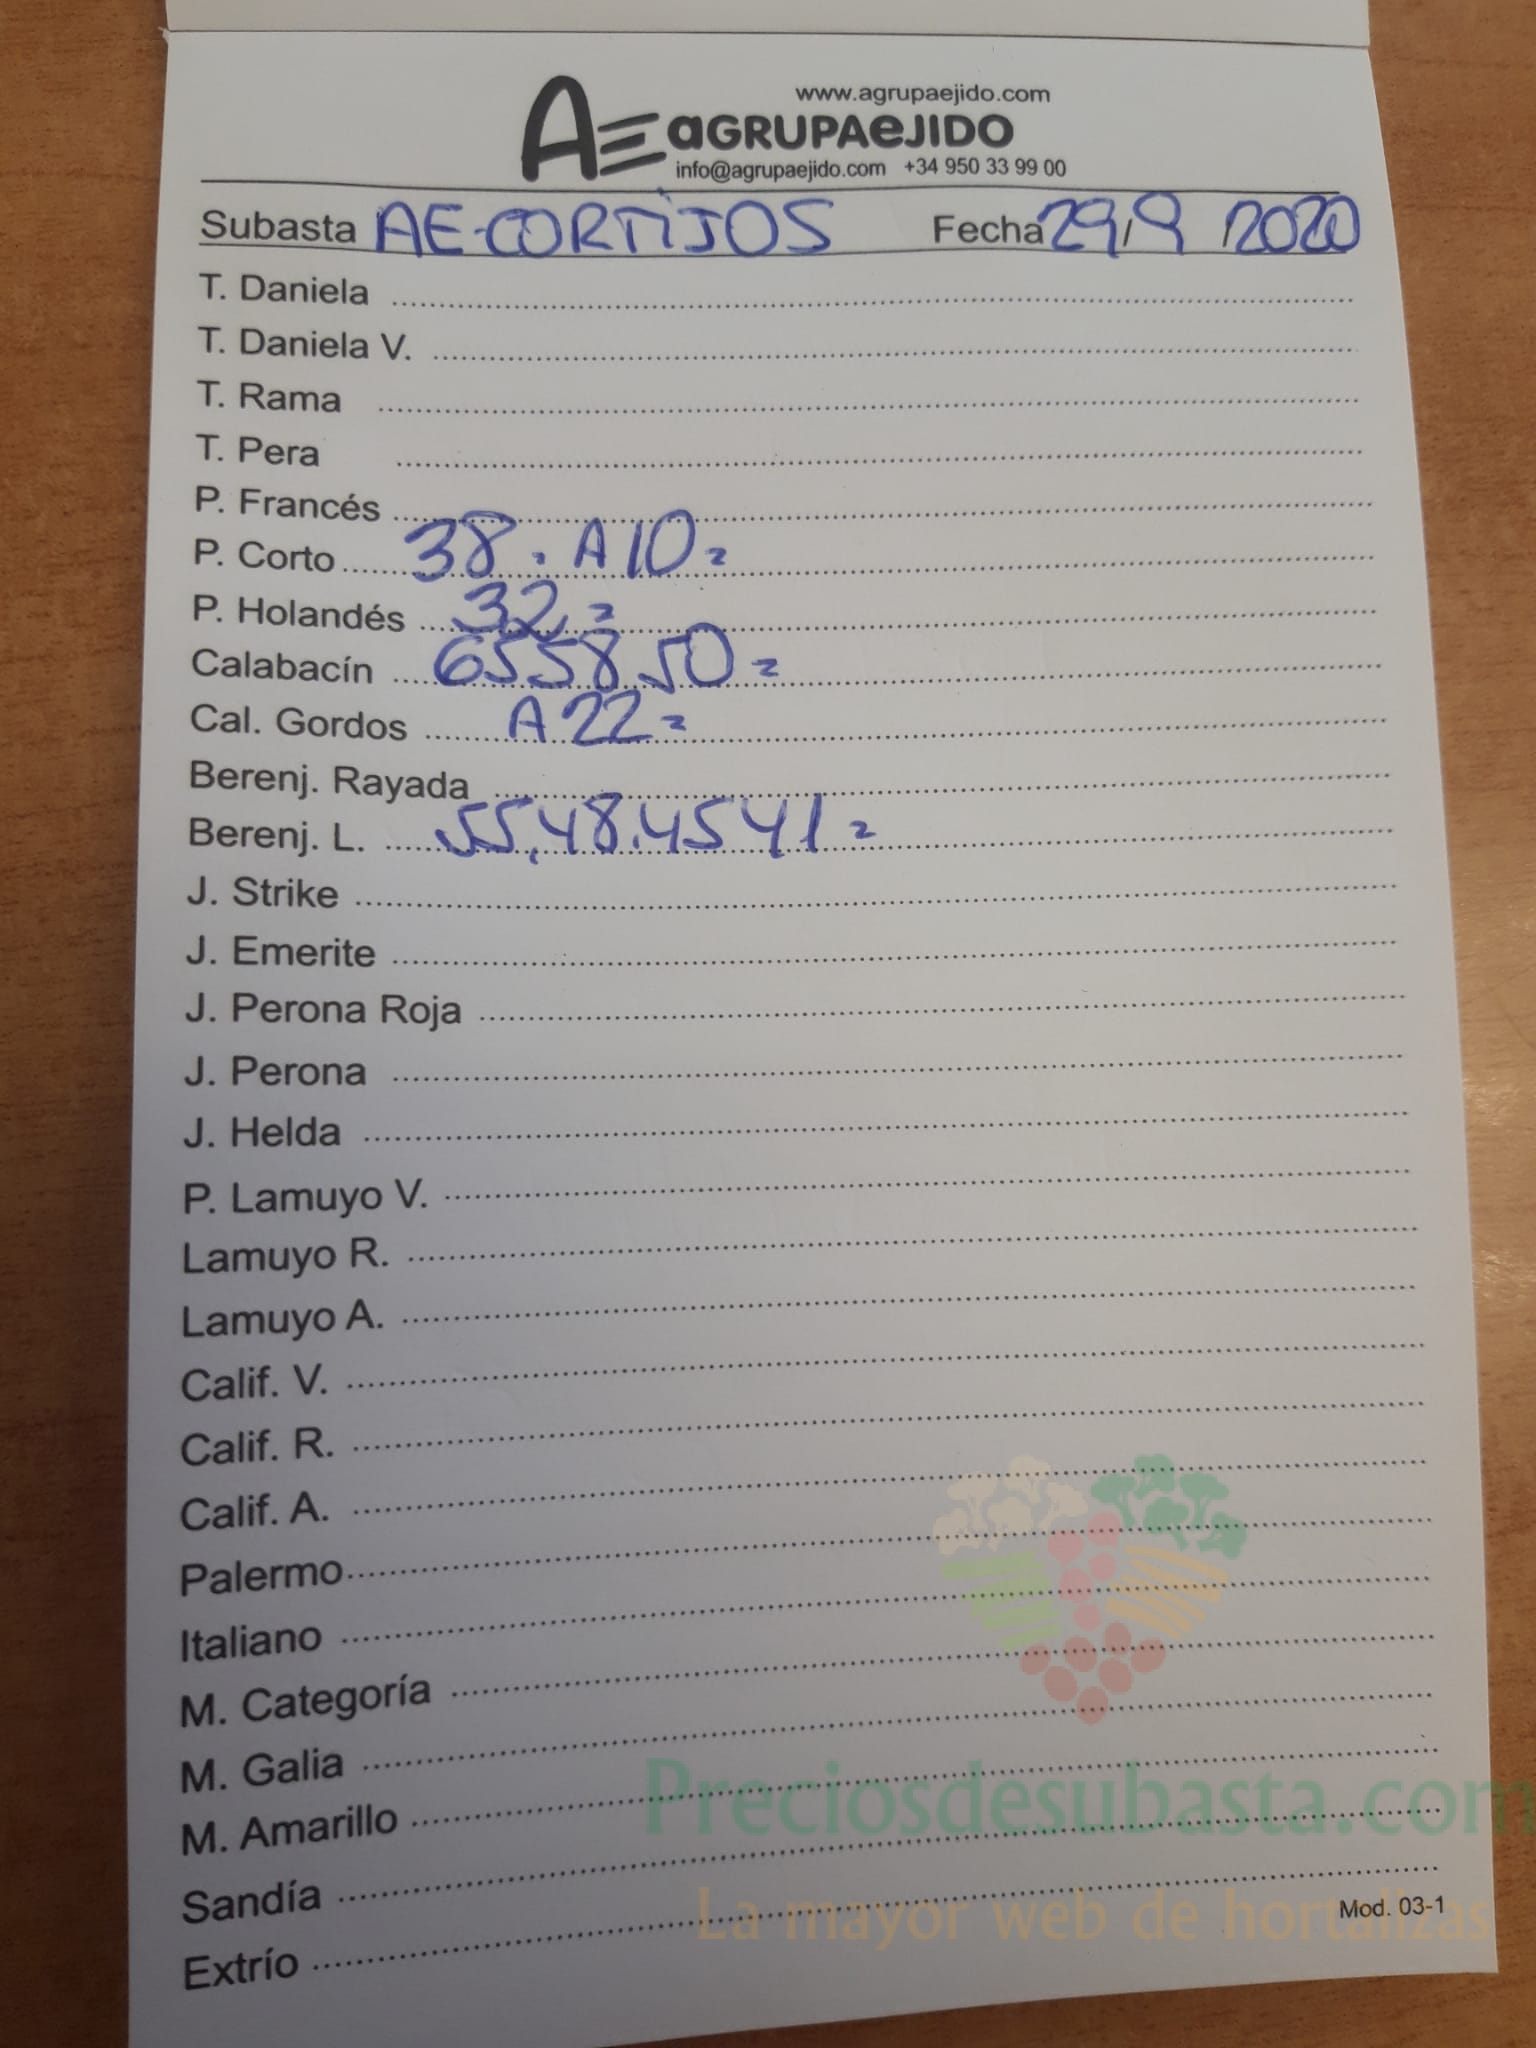 www.agrupaejido.com
AE aGRUPAeJIDO
info@agrupaejido.com +34 950 33 99 00
Subasta AE-CORTIJOS Fecha 29/9/2020
T. Daniela
T. Daniela V.
T. Rama
T. Pera
P. Francés
P. Corto 38. A 10=
P. Holandés 32=
Calabacín 65 58 50=
Cal. Gordos A 22=
Berenj. Rayada
Berenj. L. 55,48.45 41=
J. Strike
J. Emerite
J. Perona Roja
J. Perona
J. Helda
P. Lamuyo V.
Lamuyo R.
Lamuyo A.
Calif. V.
Calif. R.
Calif. A.
Palermo
Italiano
M. Categoría
M. Galia
M. Amarillo
Preciosdesubasta.com
Sandía
La mayor web de hortalizas
Mod. 03-1
Extrío